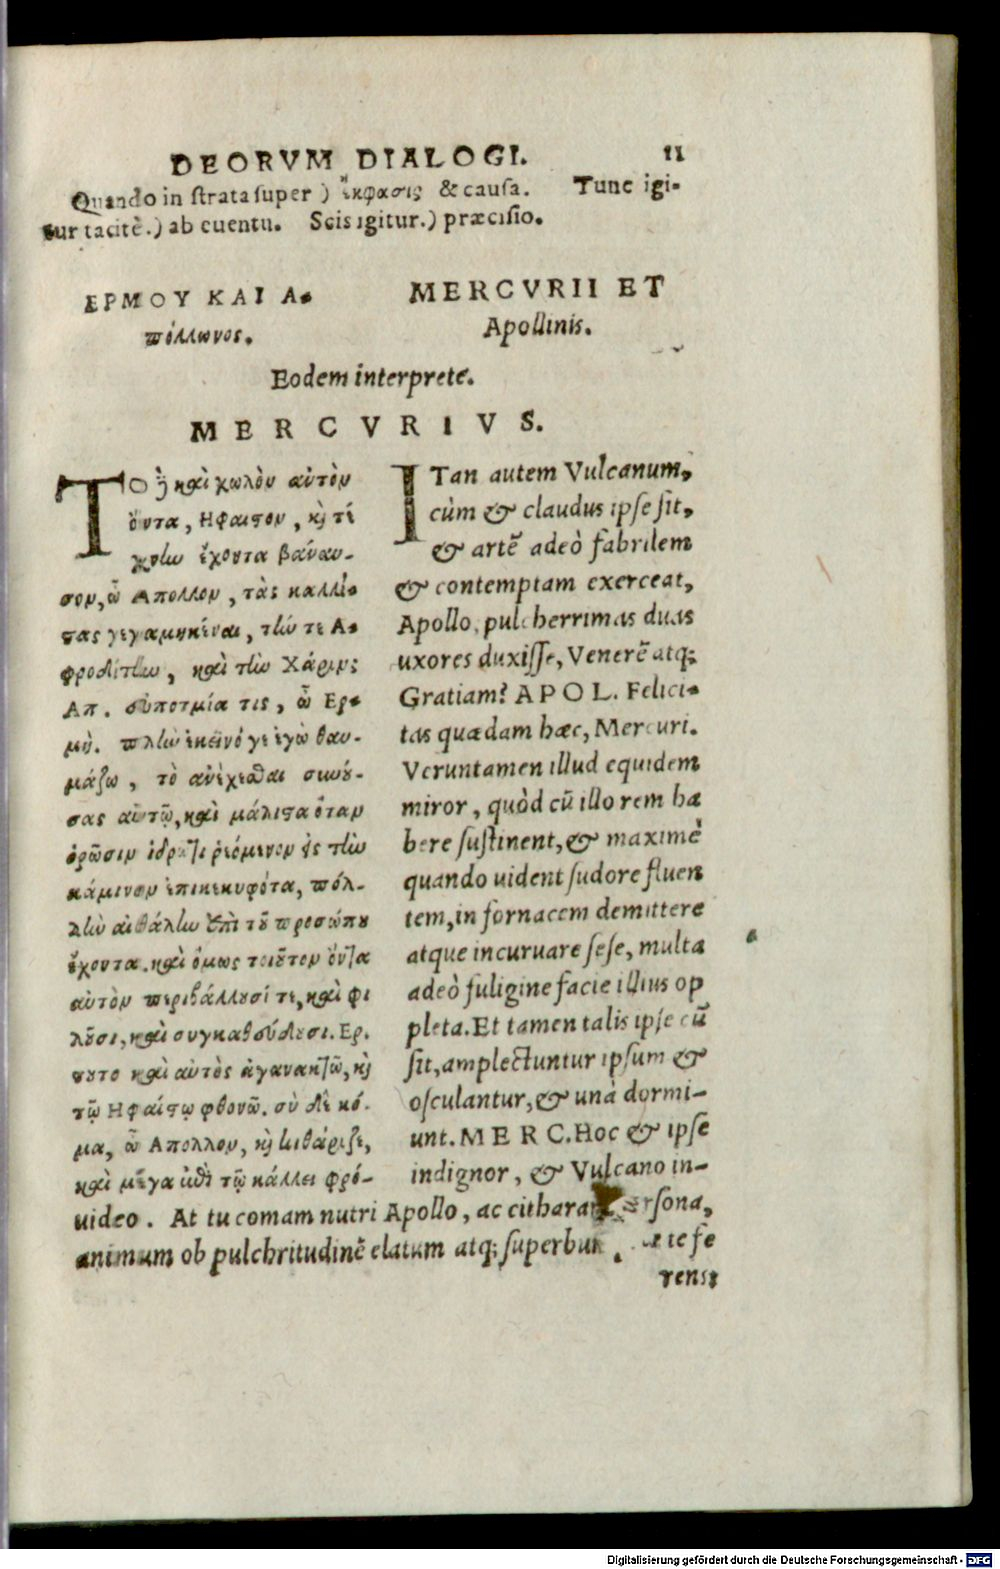 DEORVM DIALOGI. 11
Quando in strata super ) ἔκφασις & causa. Tunc igi-
tur tacitè.) ab euentu. Scis igitur.) præcisio.
ΕΡΜΟΥ ΚΑΙ Α-
πόλλωνος.
MERCVRII ET
Apollinis.
Eodem interprete.
MERCVRIVS.
ΤΟ δὲ καὶ χωλὸν αὐτὸν
ὄντα, Ηφαιστον, καὶ τέ
χνην ἔχοντα βάναυ-
σον, ὦ Απολλον, τὰς καλλί-
στας γεγαμηκέναι, τήν τε Α-
φροδίτην, καὶ τὴν Χάριν;
Απ. εὐποτμία τις, ὦ Ερ-
μῆ. πλὴν ἐκεῖνό γε ἐγὼ θαυ-
μάζω, τὸ ἀνέχεσθαι συνού-
σας αὐτῷ, καὶ μάλιστα ὅταν
ὁρῶσιν ἱδρῶτι ῥεόμενον ἐς τὴν
κάμινον ἐπικεκυφότα, πολ-
λὴν αἰθάλην ἐπὶ τοῦ προσώπου
ἔχοντα. καὶ ὅμως τοιοῦτον ὄντα
αὐτὸν περιβάλλουσί τε, καὶ φι
λοῦσι, καὶ συγκαθεύδουσι. Ερ.
τουτο καὶ αὐτὸς ἀγανακτῶ, καὶ
τῷ Ηφαίστῳ φθονῶ. σὺ δὲ κό-
μα, ὦ Απολλον, καὶ κιθάριζε,
καὶ μέγα ἐπὶ τῷ κάλλει φρό-
ITan autem Vulcanum,
cùm & claudus ipse sit,
& artē adeò fabrilem
& contemptam exerceat,
Apollo, pulcherrimas duas
uxores duxisse, Venerē atq;
Gratiam? APOL. Felici-
tas quædam hæc, Mercuri.
Veruntamen illud equidem
miror, quòd cū illo rem ha
bere sustinent, & maximè
quando uident sudore fluen
tem, in fornacem demittere
atque incuruare sese, multa
adeò fuligine facie illius op
pleta. Et tamen talis ipse cū
sit, amplectuntur ipsum &
osculantur, & unà dormi-
unt. MERC. Hoc & ipse
indignor, & Vulcano in-
uideo. At tu comam nutri Apollo, ac citharam persona,
animum ob pulchritudinē elatum atq; superbum te fe
rens:
Digitalisierung gefördert durch die Deutsche Forschungsgemeinschaft - DFG